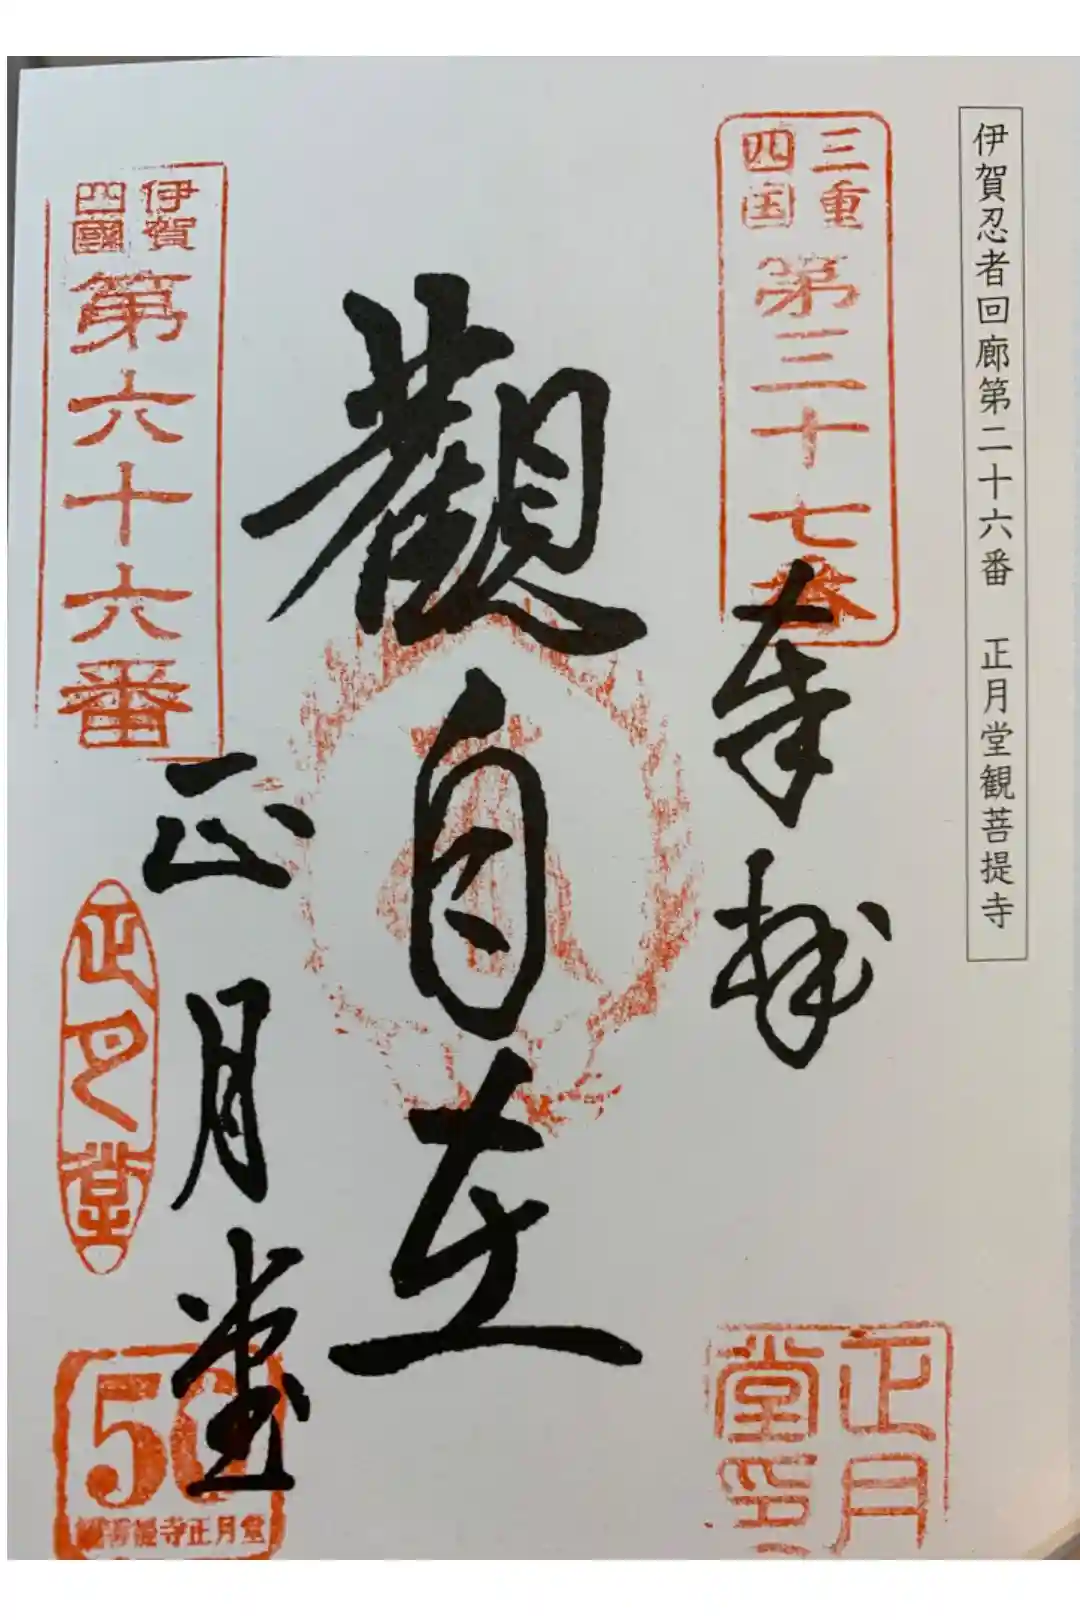 伊賀忍者回廊第二十六番　正月堂観菩提寺
三重
四国
第三十七番
奉拝
正月
堂印
觀自在
伊賀
四國
第六十六番
正月堂
正月堂
50
観菩提寺正月堂